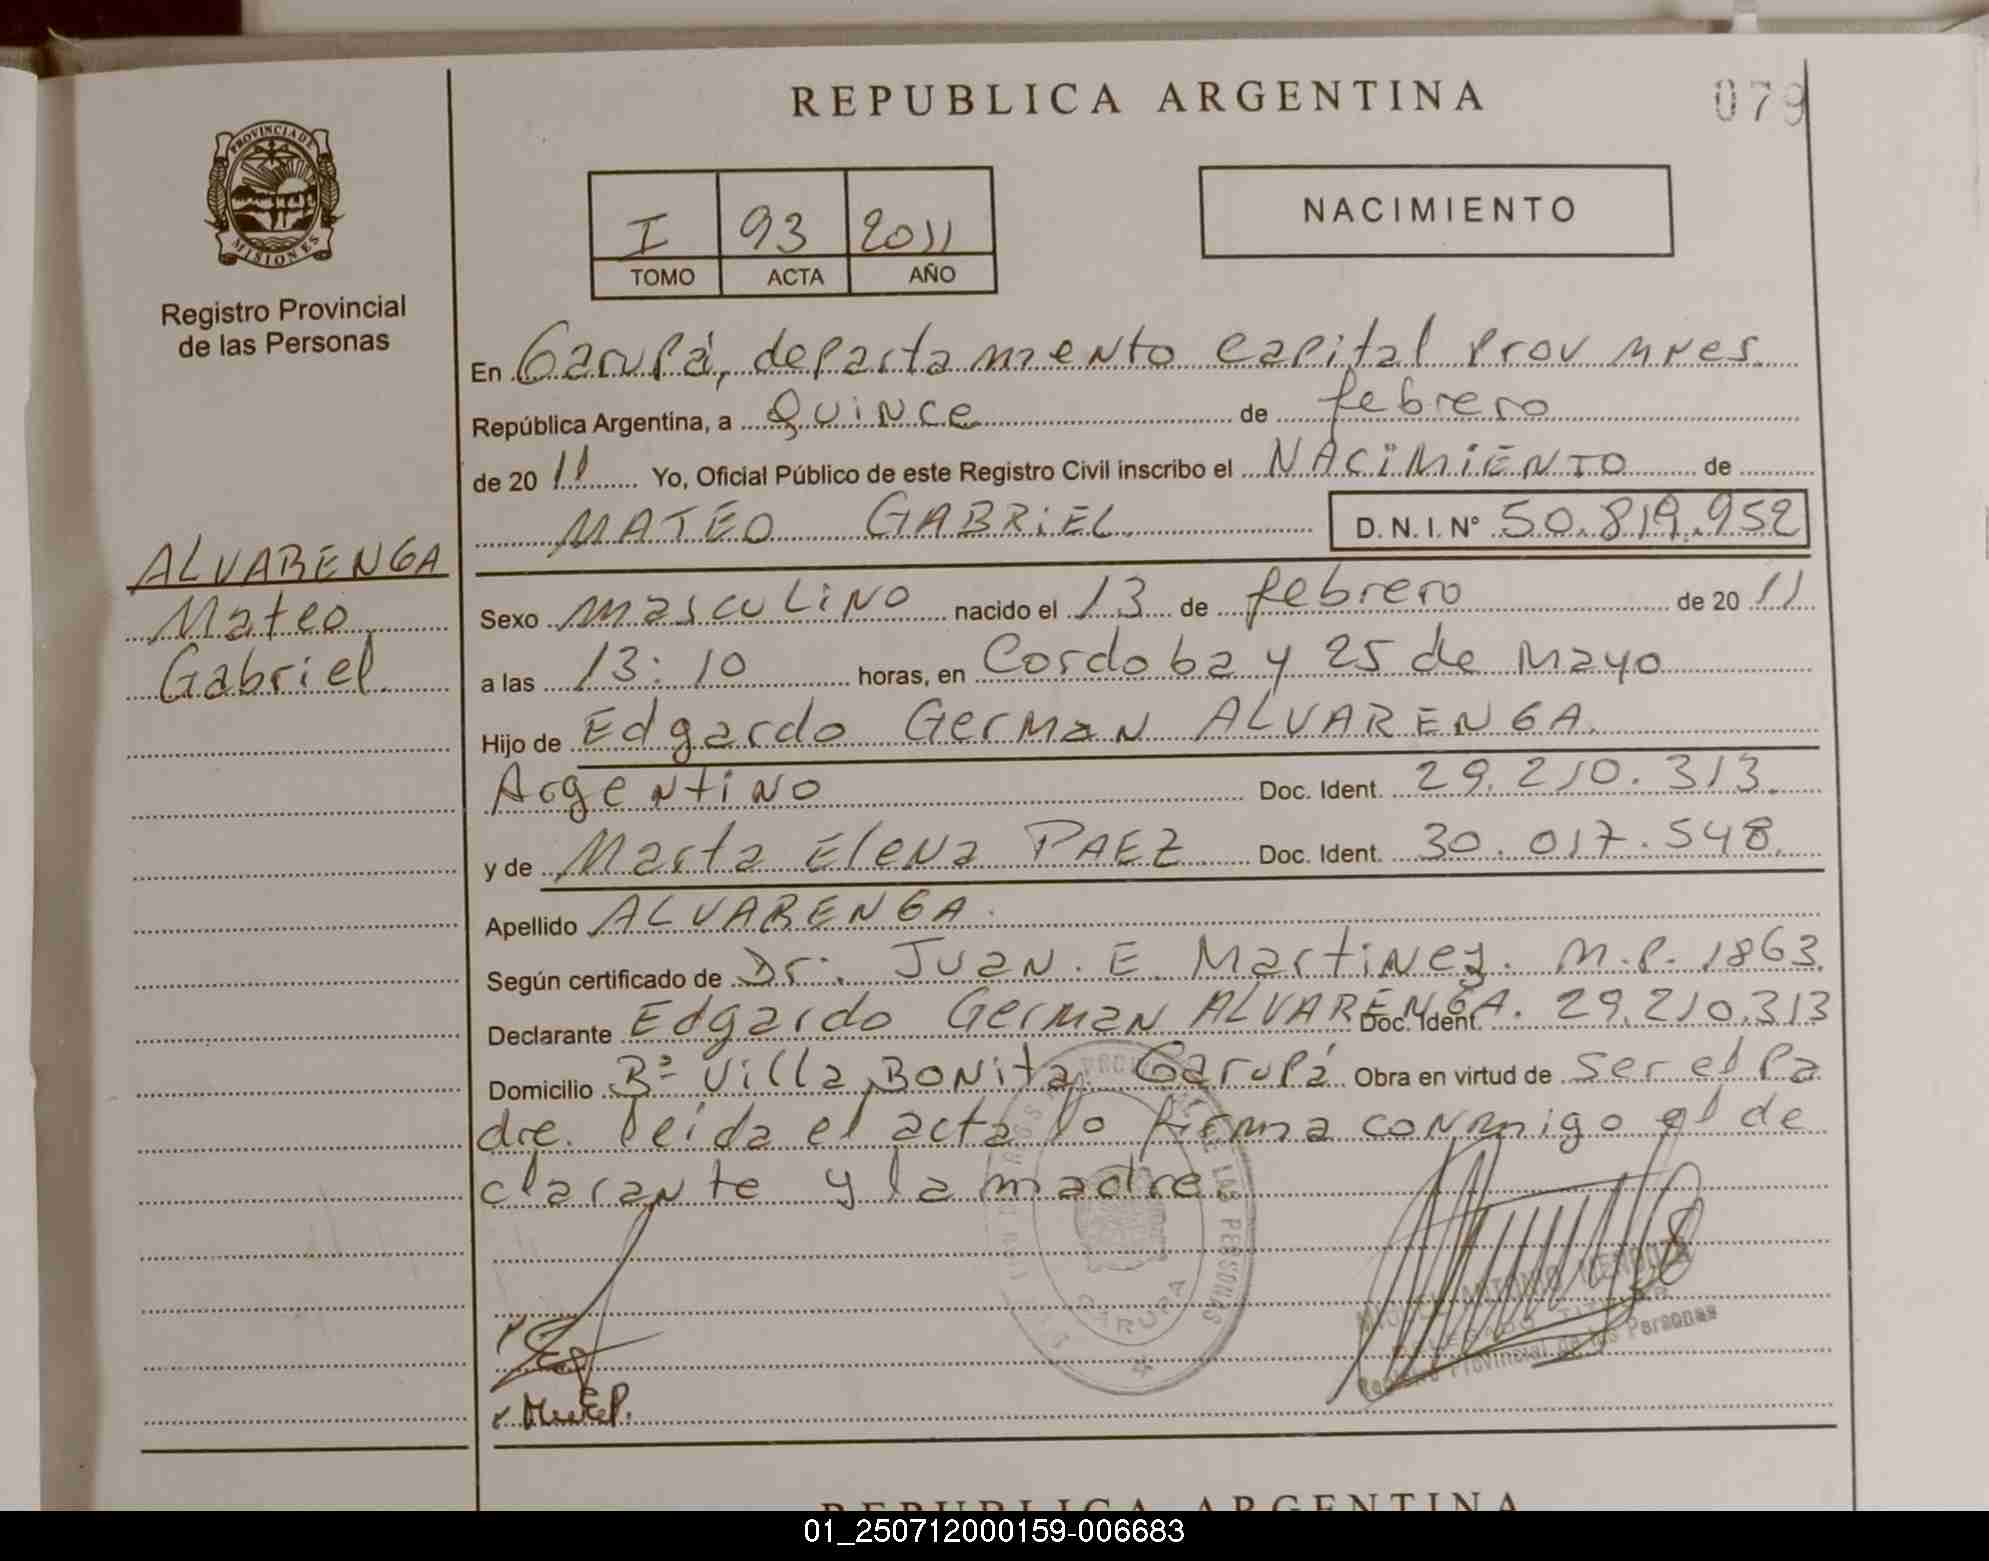 REPUBLICA ARGENTINA
079
PROVINCIA DE
MISIONES
Registro Provincial
de las Personas
I 93 2011
TOMO ACTA AÑO
NACIMIENTO
En Garupá, departamento capital Prov Mnes.
República Argentina, a Quince de febrero
de 20 11 Yo, Oficial Público de este Registro Civil inscribo el NACIMIENTO de
MATEO GABRIEL D.N.I. N° 50.819.952
ALVARENGA
Mateo
Gabriel
Sexo masculino nacido el 13 de febrero de 20 11
a las 13:10 horas, en Cordoba y 25 de Mayo
Hijo de Edgardo German ALVARENGA.
Argentino Doc. Ident. 29.210.313.
y de Marta Elena PAEZ Doc. Ident. 30.017.548.
Apellido ALVARENGA.
Según certificado de Dr. Juan. E. Martinez. M.P. 1863.
Declarante Edgardo German ALVARENGA. Doc. Ident. 29.210.313
Domicilio Bº Villa Bonita, Garupá Obra en virtud de ser el Pa
dre. leída el acta lo firma conmigo el de
clarante y la madre.
DE LAS PERSONAS
GARUPA
ANTONIO MENDOZA
DELEGADO TITULAR
Registro Provincial de las Personas
REPUBLICA ARGENTINA
01_250712000159-006683